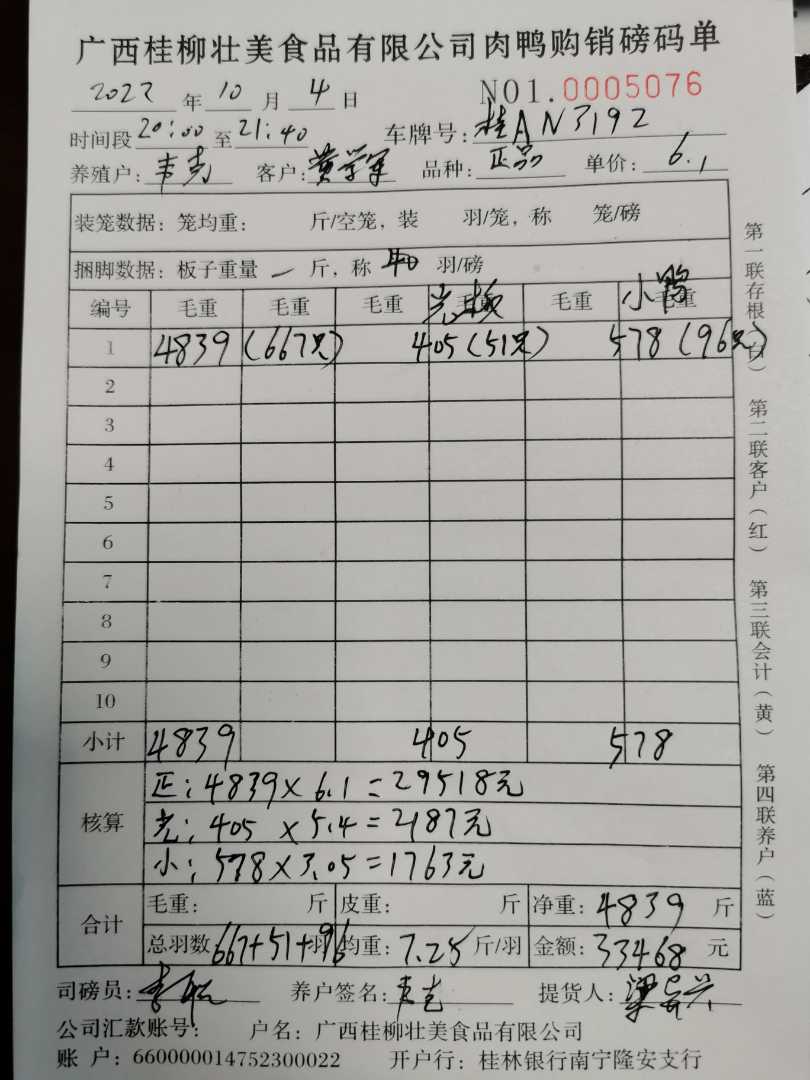 广西桂柳壮美食品有限公司肉鸭购销磅码单
2022 年 10 月 4 日 NO1.0005076
时间段 20:00 至 21:40 车牌号: 桂AN3192
养殖户: 韦克 客户: 黄学军 品种: 正品 单价: 6.1
装笼数据: 笼均重: 斤/空笼, 装 羽/笼, 称 笼/磅
捆脚数据: 板子重量 一 斤, 称 40 羽/磅
编号 毛重 毛重 毛重 毛重 毛重 毛重
小鸭
1 4839 (667只) 405 (51只) 578 (96只)
2
3
4
5
6
7
8
9
10
小计 4839 405 578
核算 正: 4839×6.1=29518元
光: 405×5.4=2187元
小: 578×3.05=1763元
合计 毛重: 斤 皮重: 斤 净重: 4839 斤
总羽数 667+51+96 羽 均重: 7.25 斤/羽 金额: 33468 元
司磅员: 养户签名: 韦克 提货人:
公司汇款账号: 户名: 广西桂柳壮美食品有限公司
账 户: 660000014752300022 开户行: 桂林银行南宁隆安支行
第一联存根(白) 第二联客户(红) 第三联会计(黄) 第四联养户(蓝)